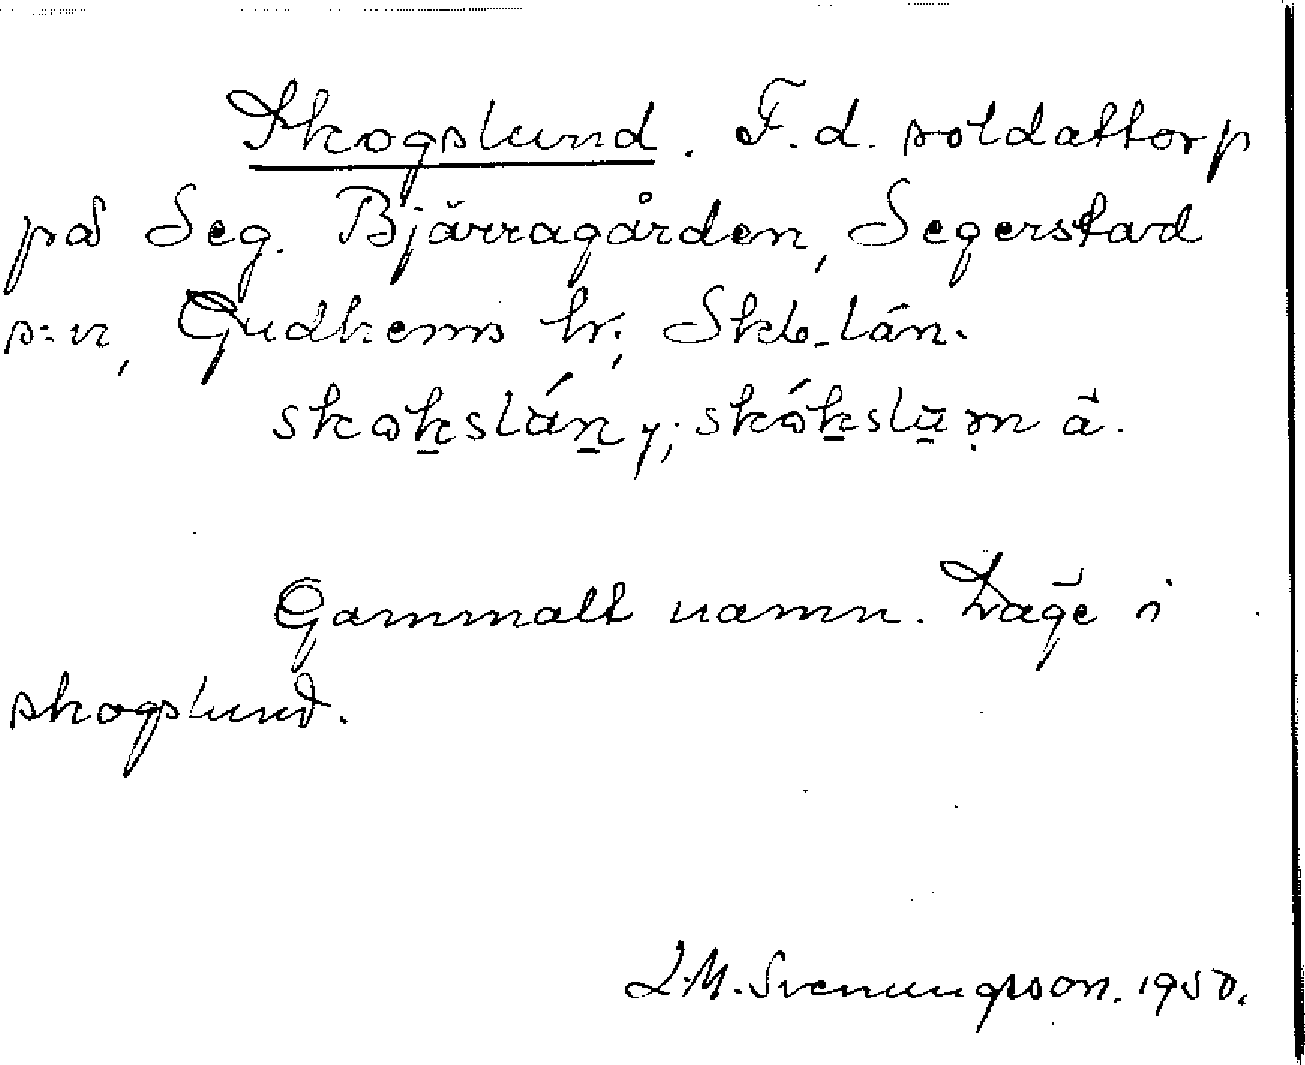 Skogslund. F.d. soldattorp
på Seg. Bjärragården, Segerstad
s:n, Gudhems hr; Skb. län.
skokslún y; skókslum ä.
Gammalt namn. Läge i
skogslund.
L.M. Svenungsson. 1950.